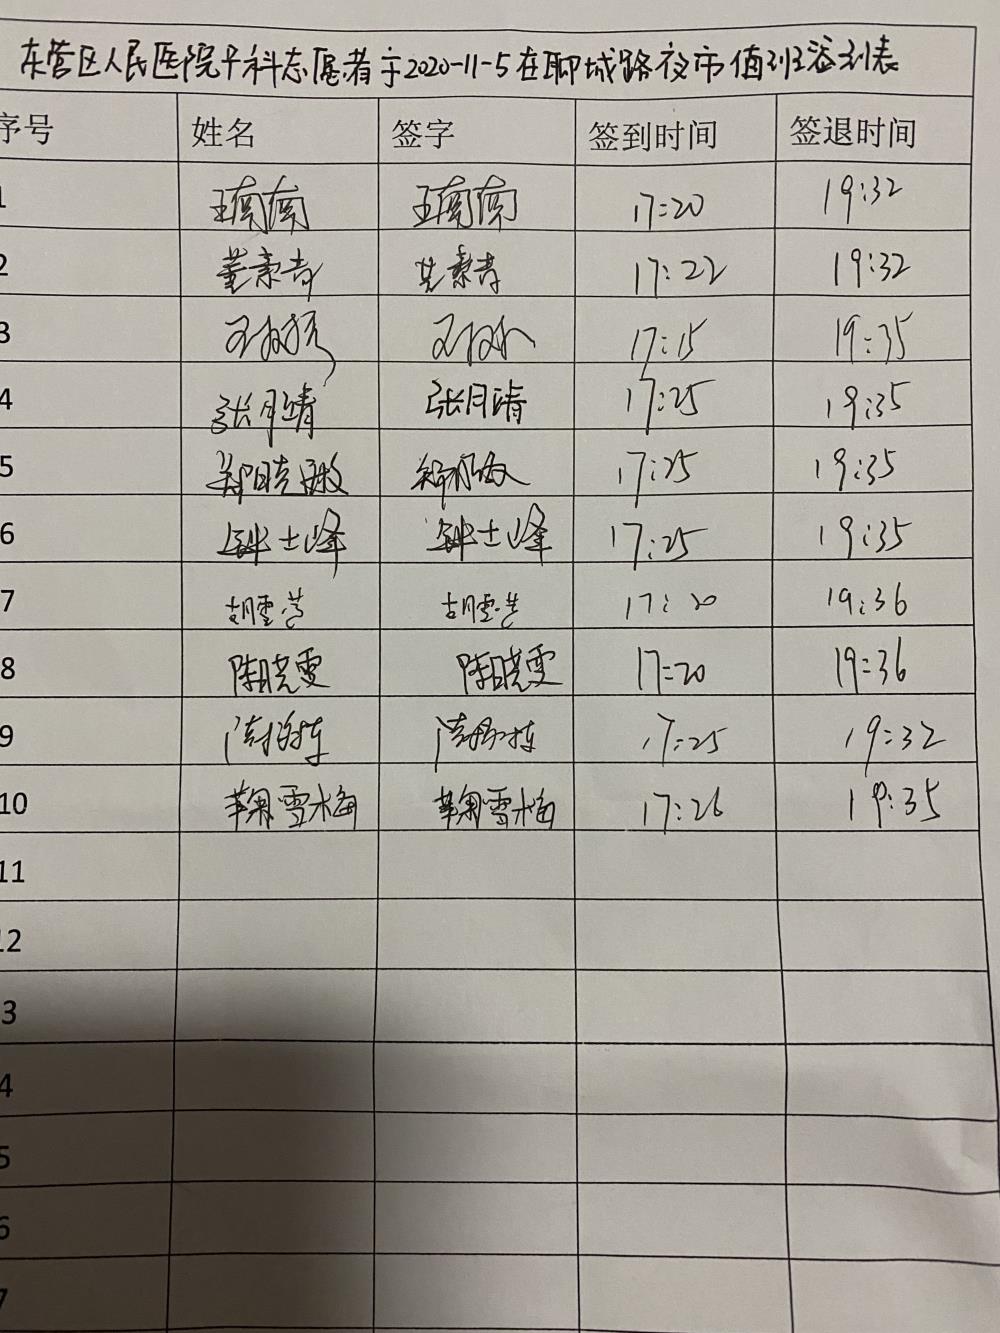 东营区人民医院牙科志愿者于2020-11-5在聊城路夜市值班签到表
序号 姓名 签字 签到时间 签退时间
1 王南南 王南南 17:20 19:32
2 董素青 董素青 17:22 19:32
3 17:15 19:35
4 张月靖 张月靖 17:25 19:35
5 郑晓敏 17:25 19:35
6 钟士峰 钟士峰 17:25 19:35
7 17:20 19:36
8 陈晓雯 陈晓雯 17:20 19:36
9 17:25 19:32
10 鞠雪梅 鞠雪梅 17:26 19:35
11
12
3
4
5
6
7